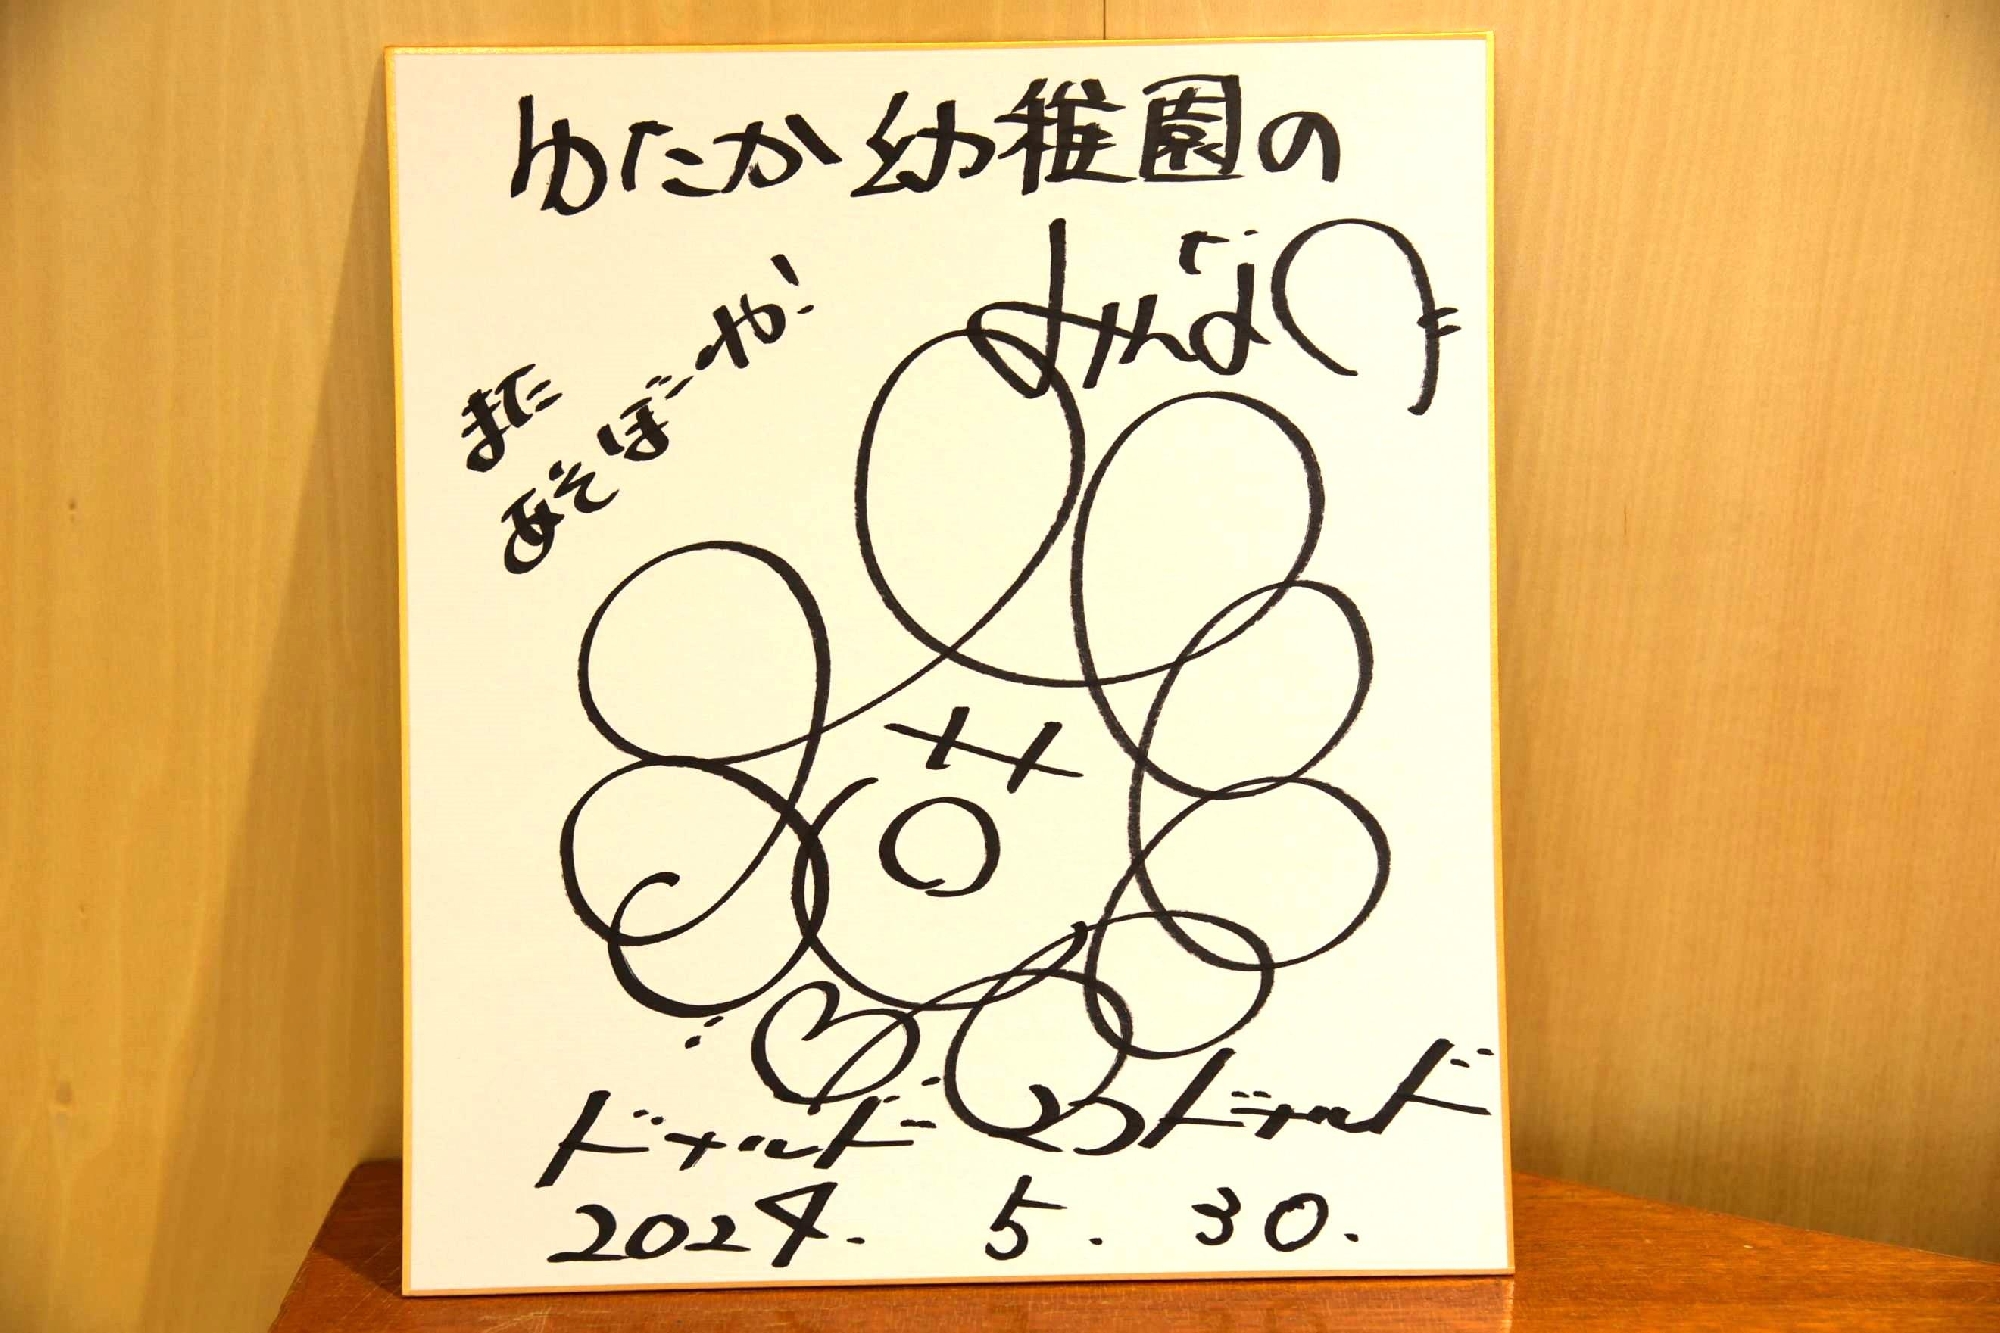 ゆたか幼稚園の
みんなへ
また
あそぼーや!
ドナルド
ドナルド
2024. 5. 30.